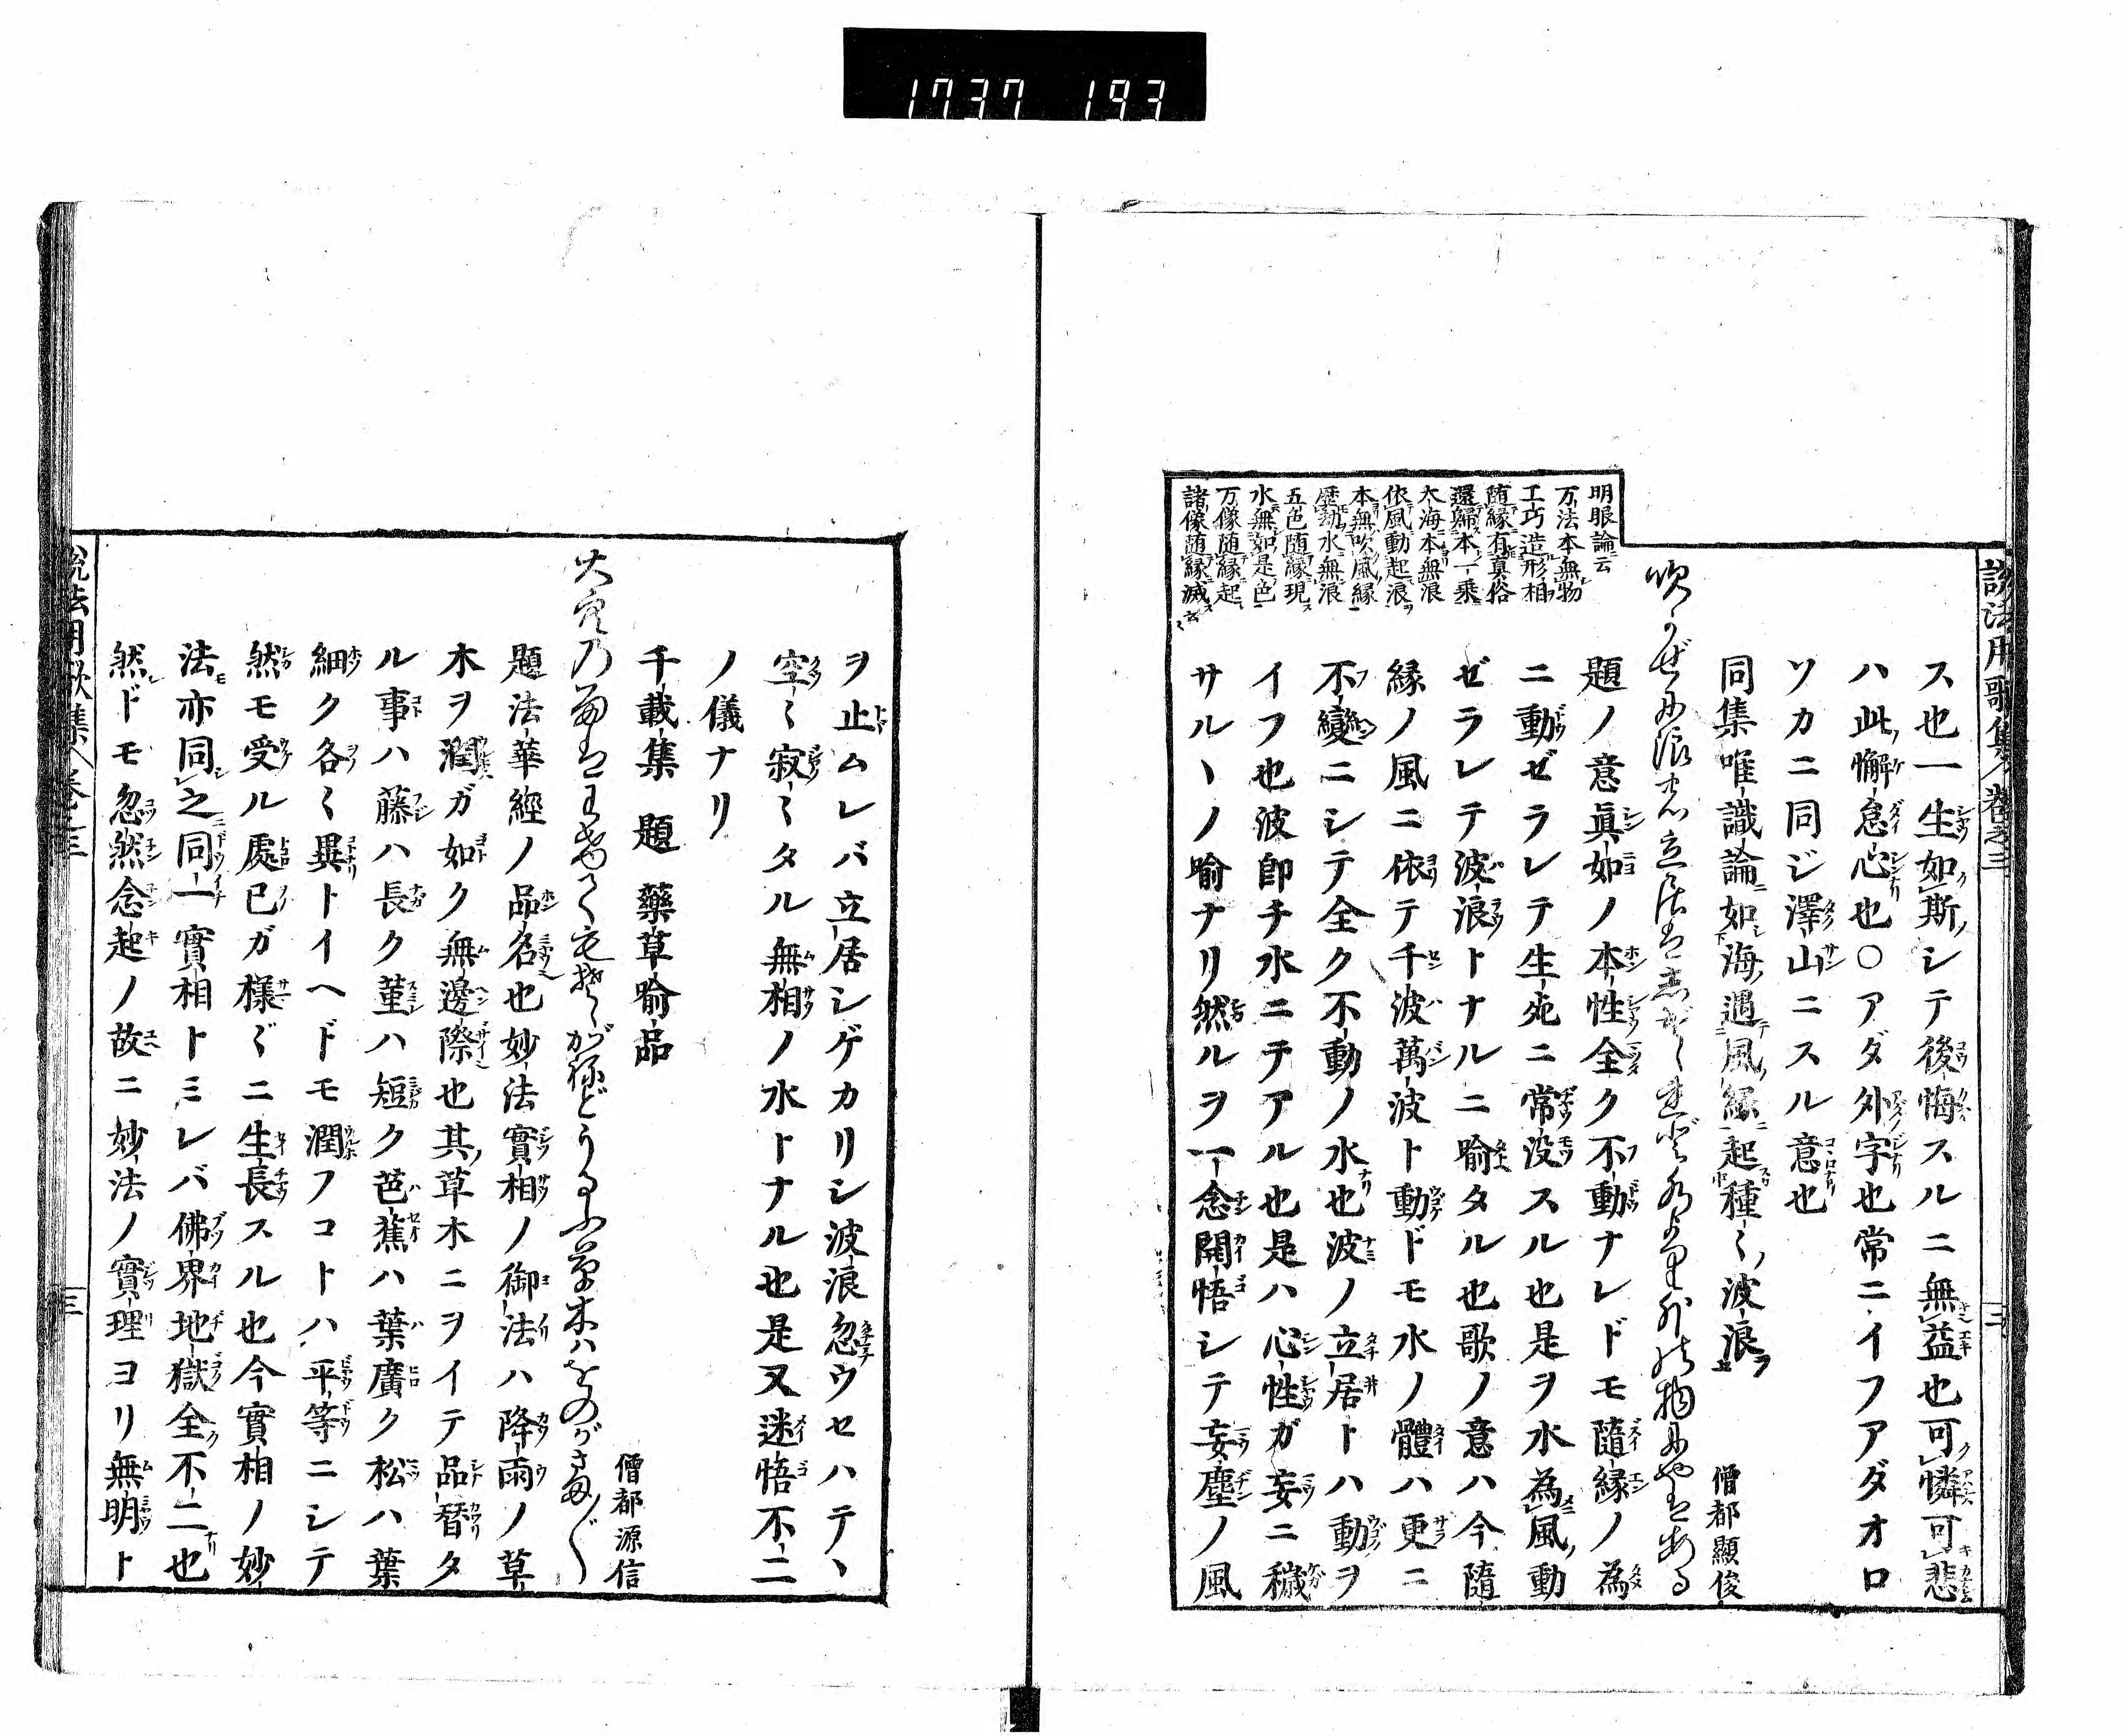 1737 193
説法用歌集 卷之三
ス也一生如斯シテ後悔スルニ無益也可憐可悲
ハ此懈怠心也○アダ外字也常ニイフアダオロ
ソカニ同ジ澤山ニスル意也
同集唯識論如海遇風縁起種〻波浪
僧都顯俊
題ノ意眞如ノ本性全ク不動ナレドモ隨縁ノ為
ニ動ゼラレテ生死ニ常没スル也是ヲ水為風動
ゼラレテ波浪トナルニ喻タル也歌ノ意ハ今隨
縁ノ風ニ依テ千波萬波ト動ドモ水ノ體ハ更ニ
不變ニシテ全ク不動ノ水也波ノ立居トハ動ヲ
イフ也波即チ水ニテアル也是ハ心性ガ妄ニ穢
サルヽノ喻ナリ然ルヲ一念開悟シテ妄塵ノ風
明眼論云
万法本無物
工巧造形相
随縁有真俗
還歸本一乗
大海本無浪
依風動起浪
本無吹風縁
歷劫水無浪
五色随縁現
水無如是色
万像随縁起
諸像随縁滅
ヲ止ムレバ立居シゲカリシ波浪忽ウセハテヽ
空〻寂〻タル無相ノ水トナル也是又迷悟不二
ノ儀ナリ
千載集 題 藥草喻品
僧都源信
題法華經ノ品名也妙法實相ノ御法ハ降雨ノ草
木ヲ潤ガ如ク無邊際也其草木ニヲイテ品替タ
ル事ハ藤ハ長ク菫ハ短ク芭蕉ハ葉廣ク松ハ葉
細ク各〻異トイヘドモ潤フコトハ平等ニシテ
然モ受ル處已ガ様〲ニ生長スル也今實相ノ妙
法亦同之同一實相トミレバ佛界地獄全不二也
然ドモ忽然念起ノ故ニ妙法ノ實理ヨリ無明ト
説法用歌集 卷之三
三